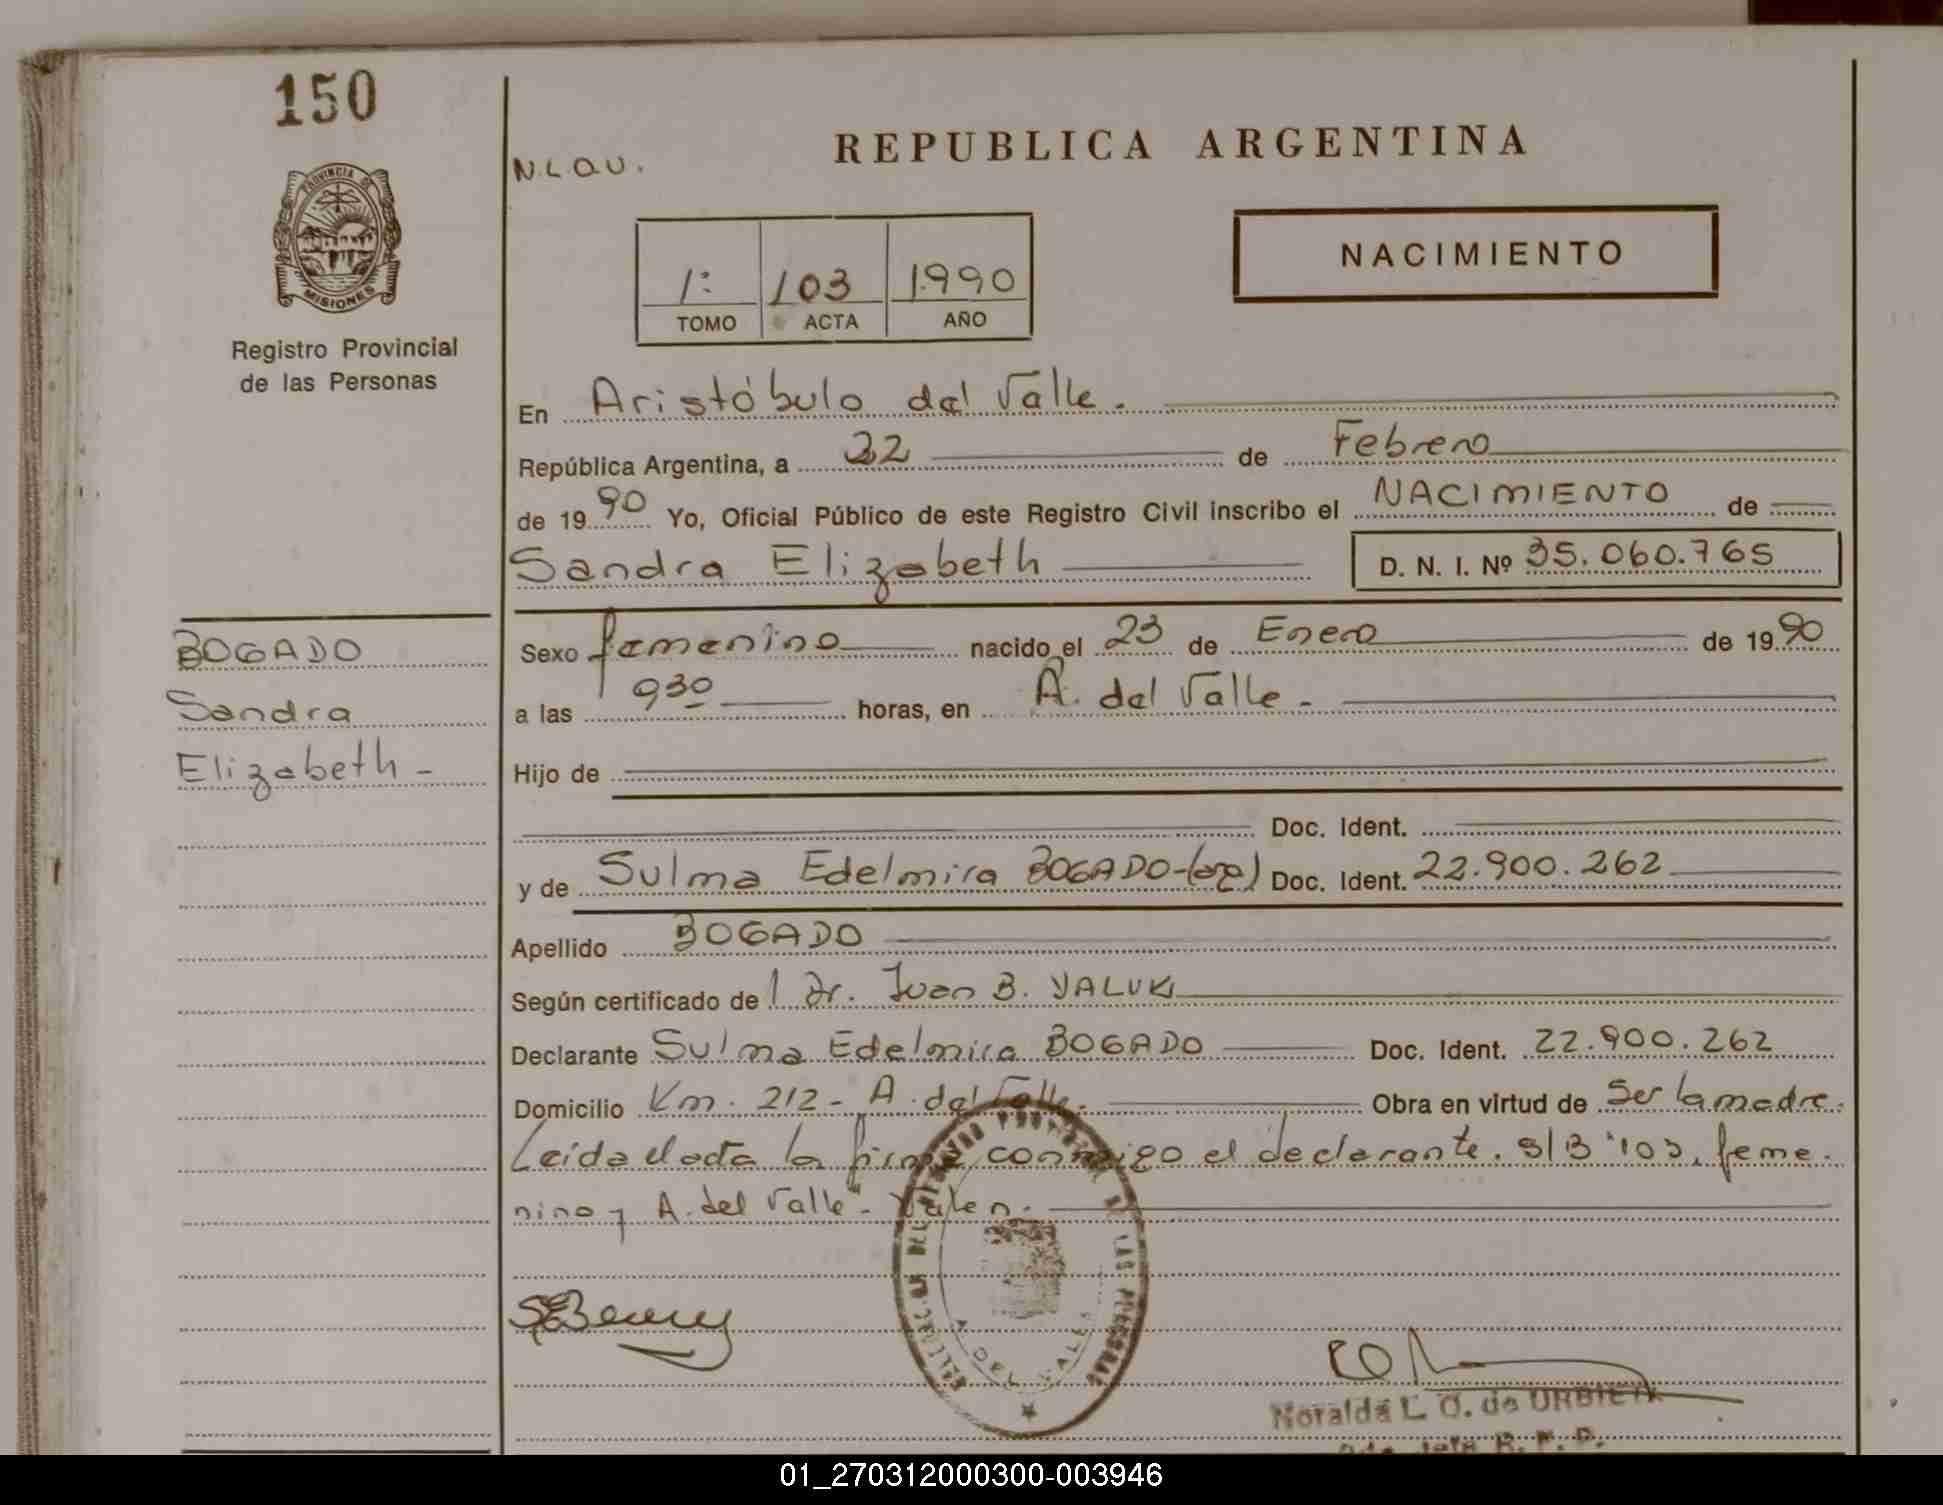 150
N.L.O.U.
REPUBLICA ARGENTINA
PROVINCIA DE
MISIONES
Registro Provincial
de las Personas
1: 103 1990
TOMO ACTA AÑO
NACIMIENTO
En Aristóbulo del Valle.
República Argentina, a 22 de Febrero
de 1990 Yo, Oficial Público de este Registro Civil inscribo el NACIMIENTO de
Sandra Elizabeth D. N. I. Nº 35.060.765
BOGADO
Sandra
Elizabeth-
Sexo femenino nacido el 23 de Enero de 1990
a las 930 horas, en A. del Valle.-
Hijo de
Doc. Ident.
y de Sulma Edelmira BOGADO-(arg) Doc. Ident. 22.900.262
Apellido BOGADO
Según certificado de l Dr. Juan B. YALUK
Declarante Sulma Edelmira BOGADO Doc. Ident. 22.900.262
Domicilio Km. 212- A. del Valle.- Obra en virtud de Ser la madre.
Leída el acta la firma conmigo el declarante. S/B "103, feme.
nino y A. del Valle"- Valen.
A. DEL VALLE
Noralda L. O. de URBIETA
R. P. P.
01_270312000300-003946